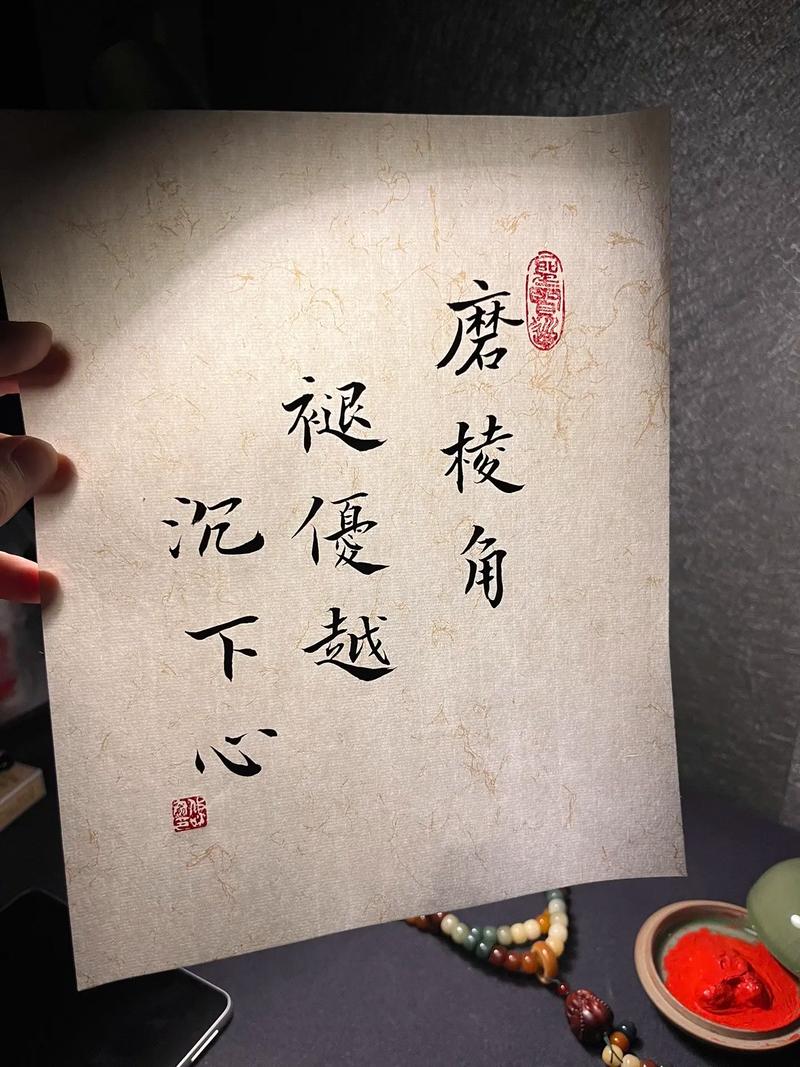 磨棱角
褪優越
沉下心